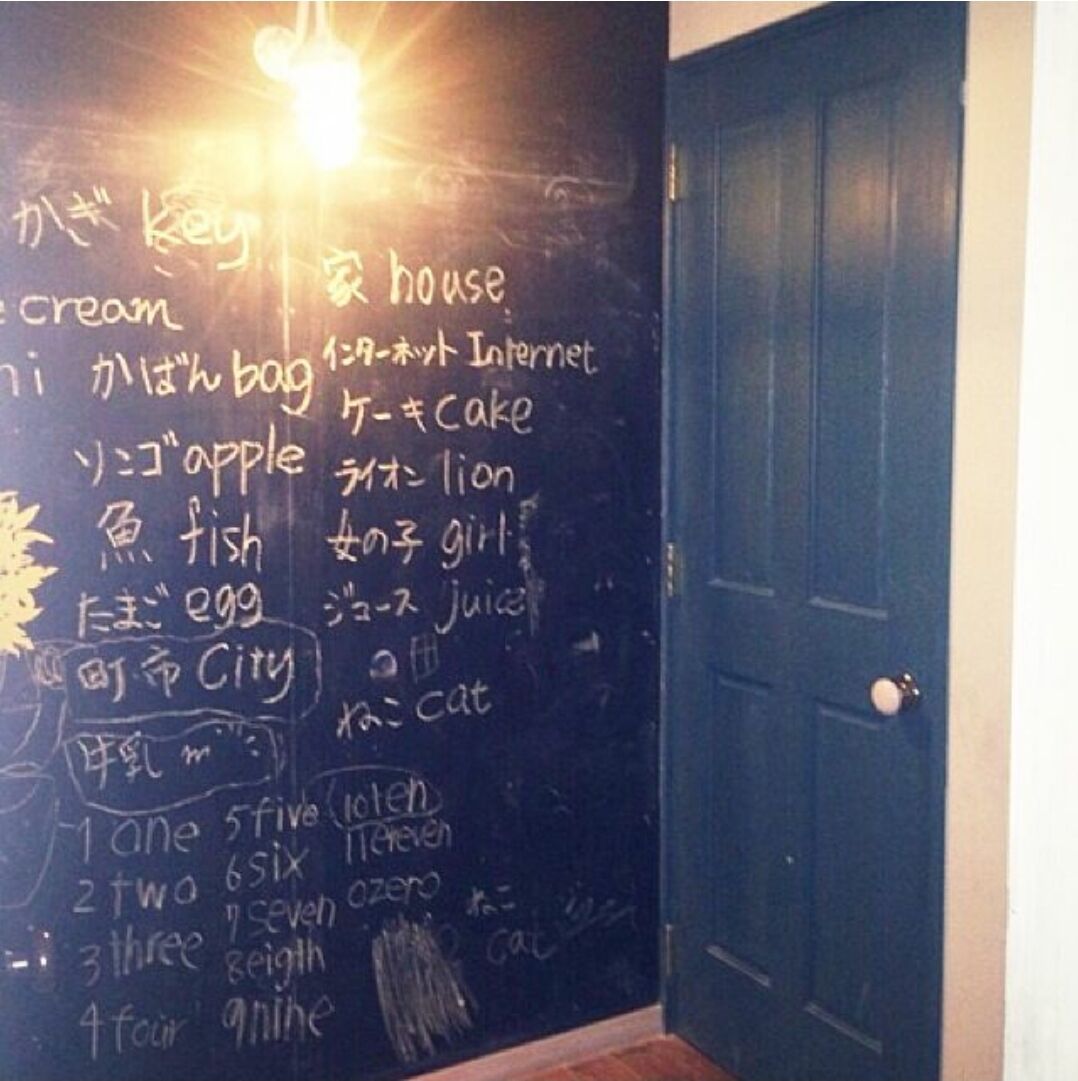 かぎ key
cream
かばん bag
リンゴ apple
魚 fish
たまご egg
町・市 City
牛乳 m
1 one
2 two
3 three
4 four
5 five
6 six
7 seven
8 eigth
9 nine
10 ten
11 ereven
0 zero
家 house
インターネット Internet
ケーキ cake
ライオン lion
女の子 girl
ジュース juice
ねこ cat
ねこ
cat